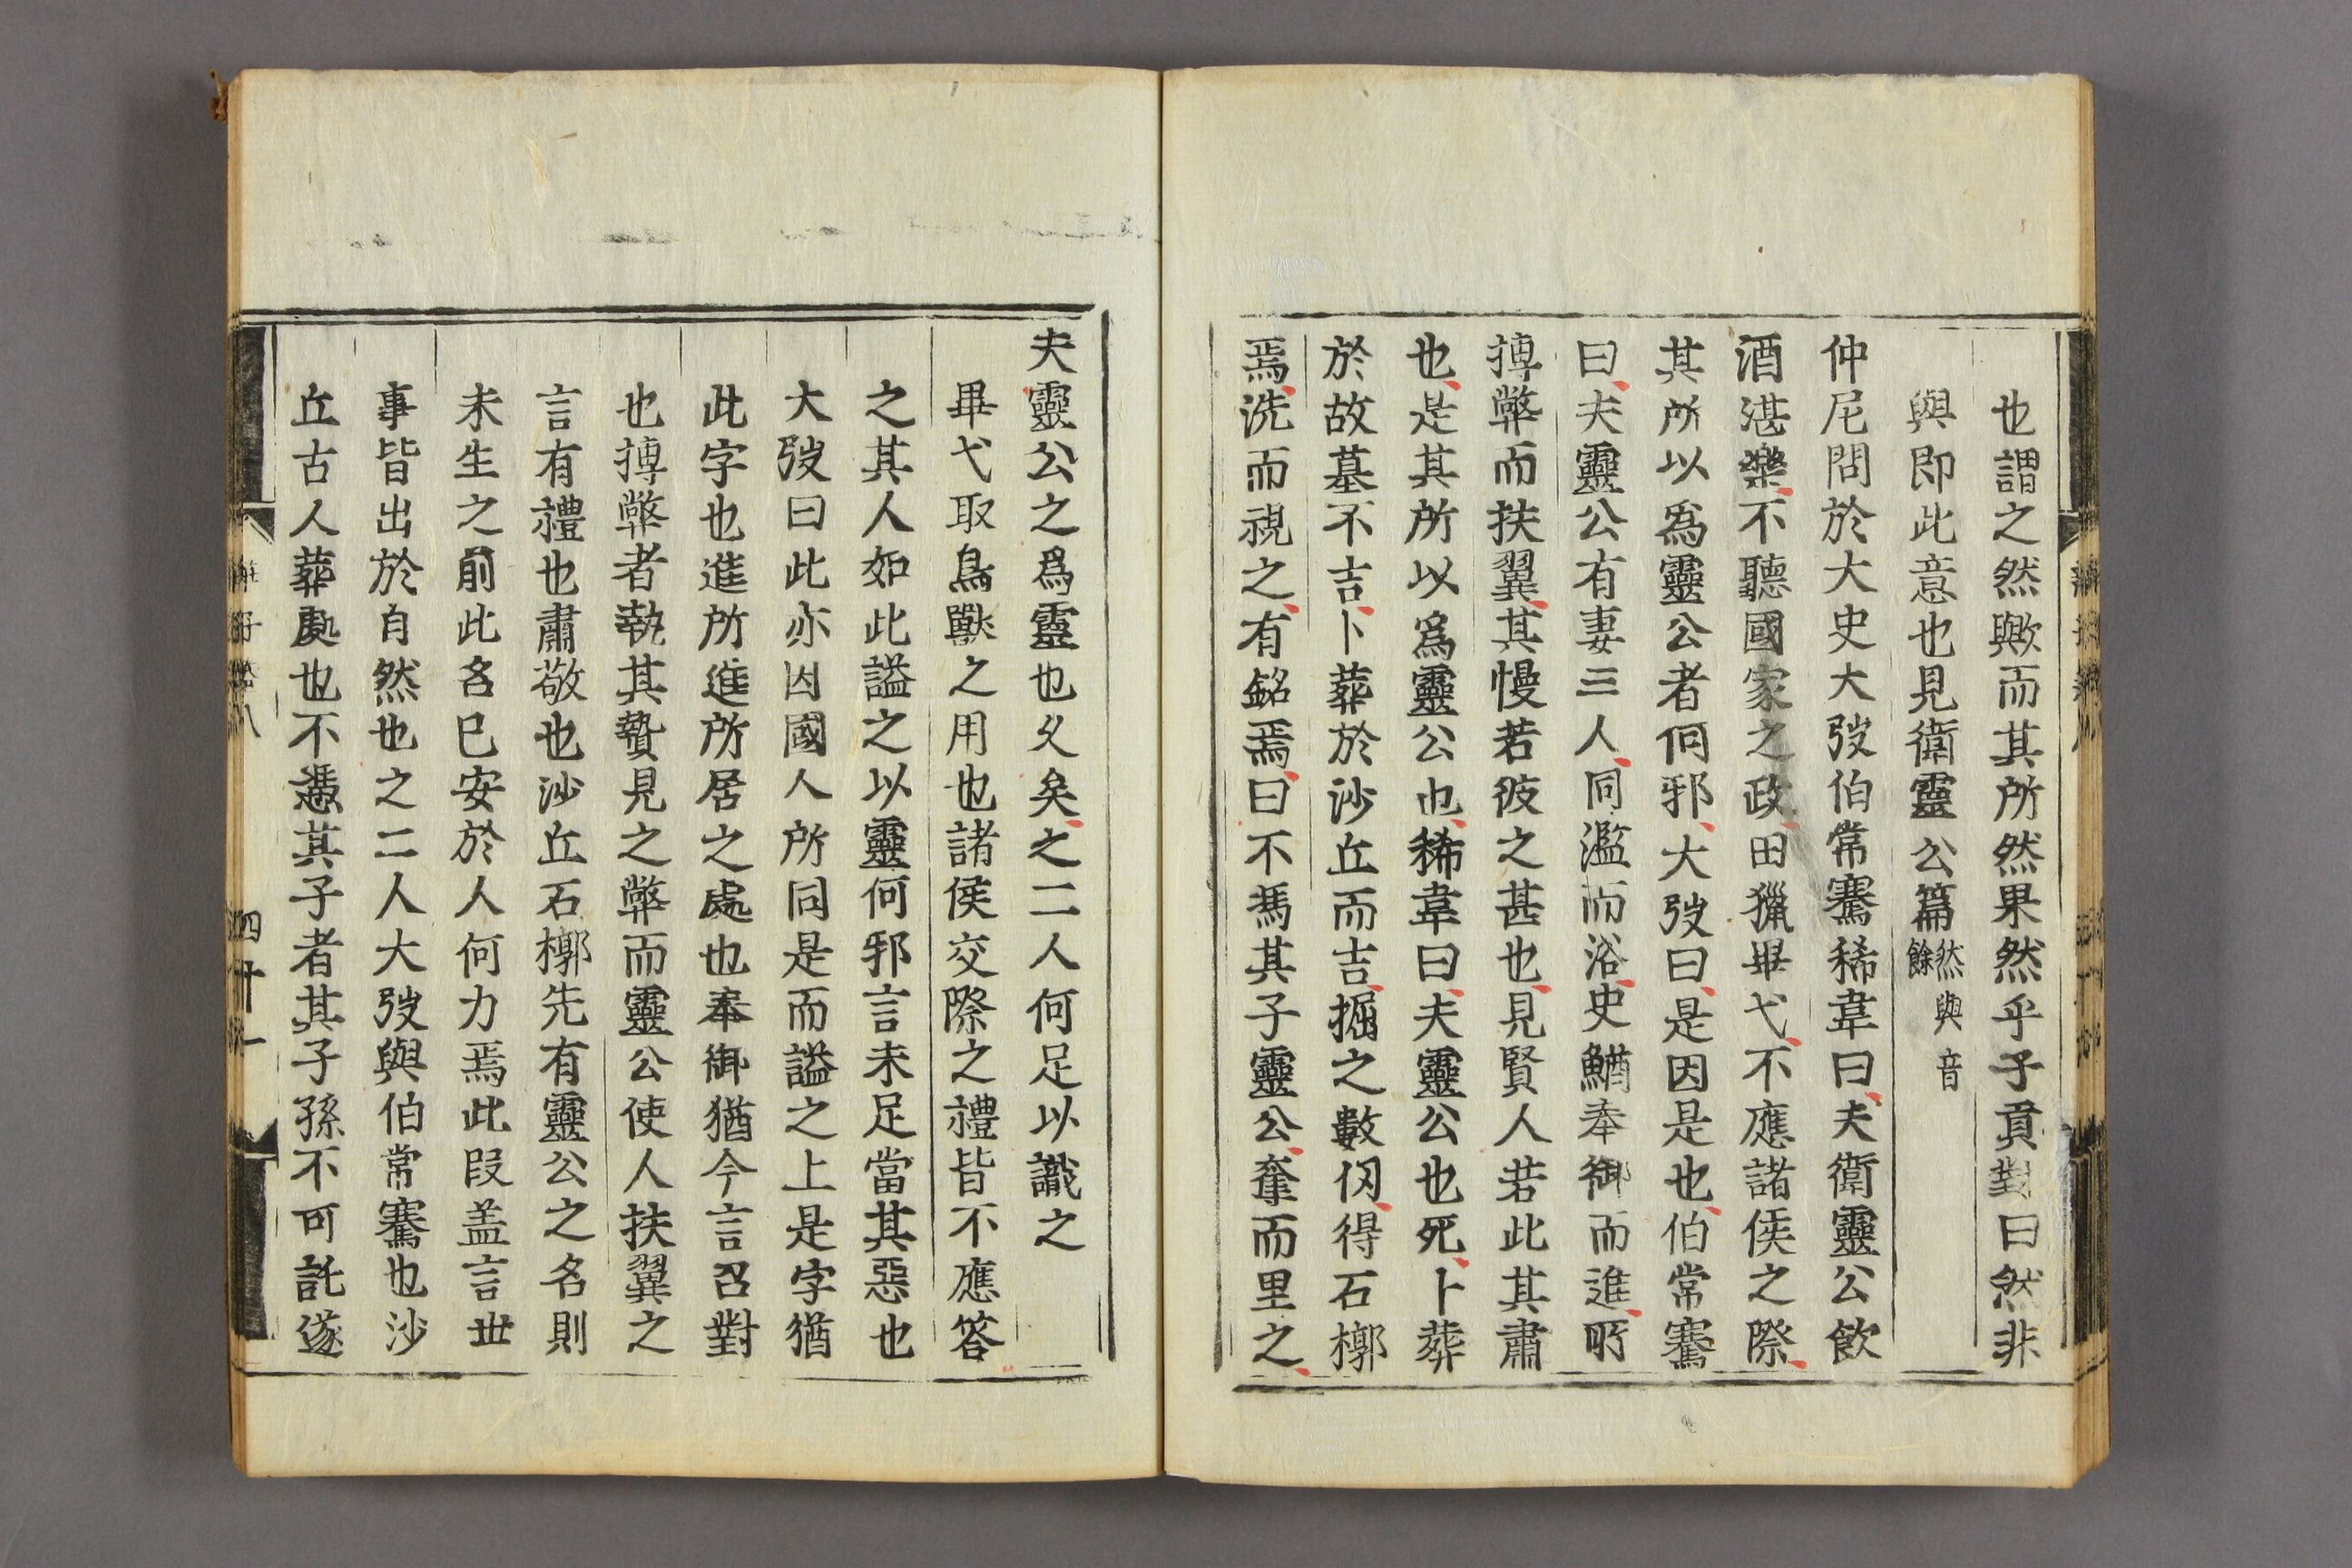 也謂之然歟而其所然果然乎子貢對曰然非
與即此意也見衛靈公篇然與音餘
仲尼問於大史大弢伯常騫狶韋曰夫衛靈公飲
酒湛樂不聽國家之政田獵畢弋不應諸侯之際
其所以爲靈公者何邪大弢曰是因是也伯常騫
曰夫靈公有妻三人同濫而浴史鰌奉御而進所
搏幣而扶翼其慢若彼之甚也見賢人若此其肅
也是其所以爲靈公也狶韋曰夫靈公也死卜葬
於故墓不吉卜葬於沙丘而吉掘之數仞得石槨
焉洗而視之有銘焉曰不馮其子靈公奪而里之
夫靈公之爲靈也久矣之二人何足以識之
畢弋取鳥獸之用也諸侯交際之禮皆不應答
之其人如此謚之以靈何邪言未足當其惡也
大弢曰此亦因國人所同是而謚之上是字猶
此字也進所進所居之處也奉御猶今言召對
也搏幣者執其贄見之幣而靈公使人扶翼之
言有禮也肅敬也沙丘石槨先有靈公之名則
未生之前此名已安於人何力焉此段盖言世
事皆出於自然也之二人大弢與伯常騫也沙
丘古人葬處也不憑其子者其子孫不可託遂
莊子卷八
四十一